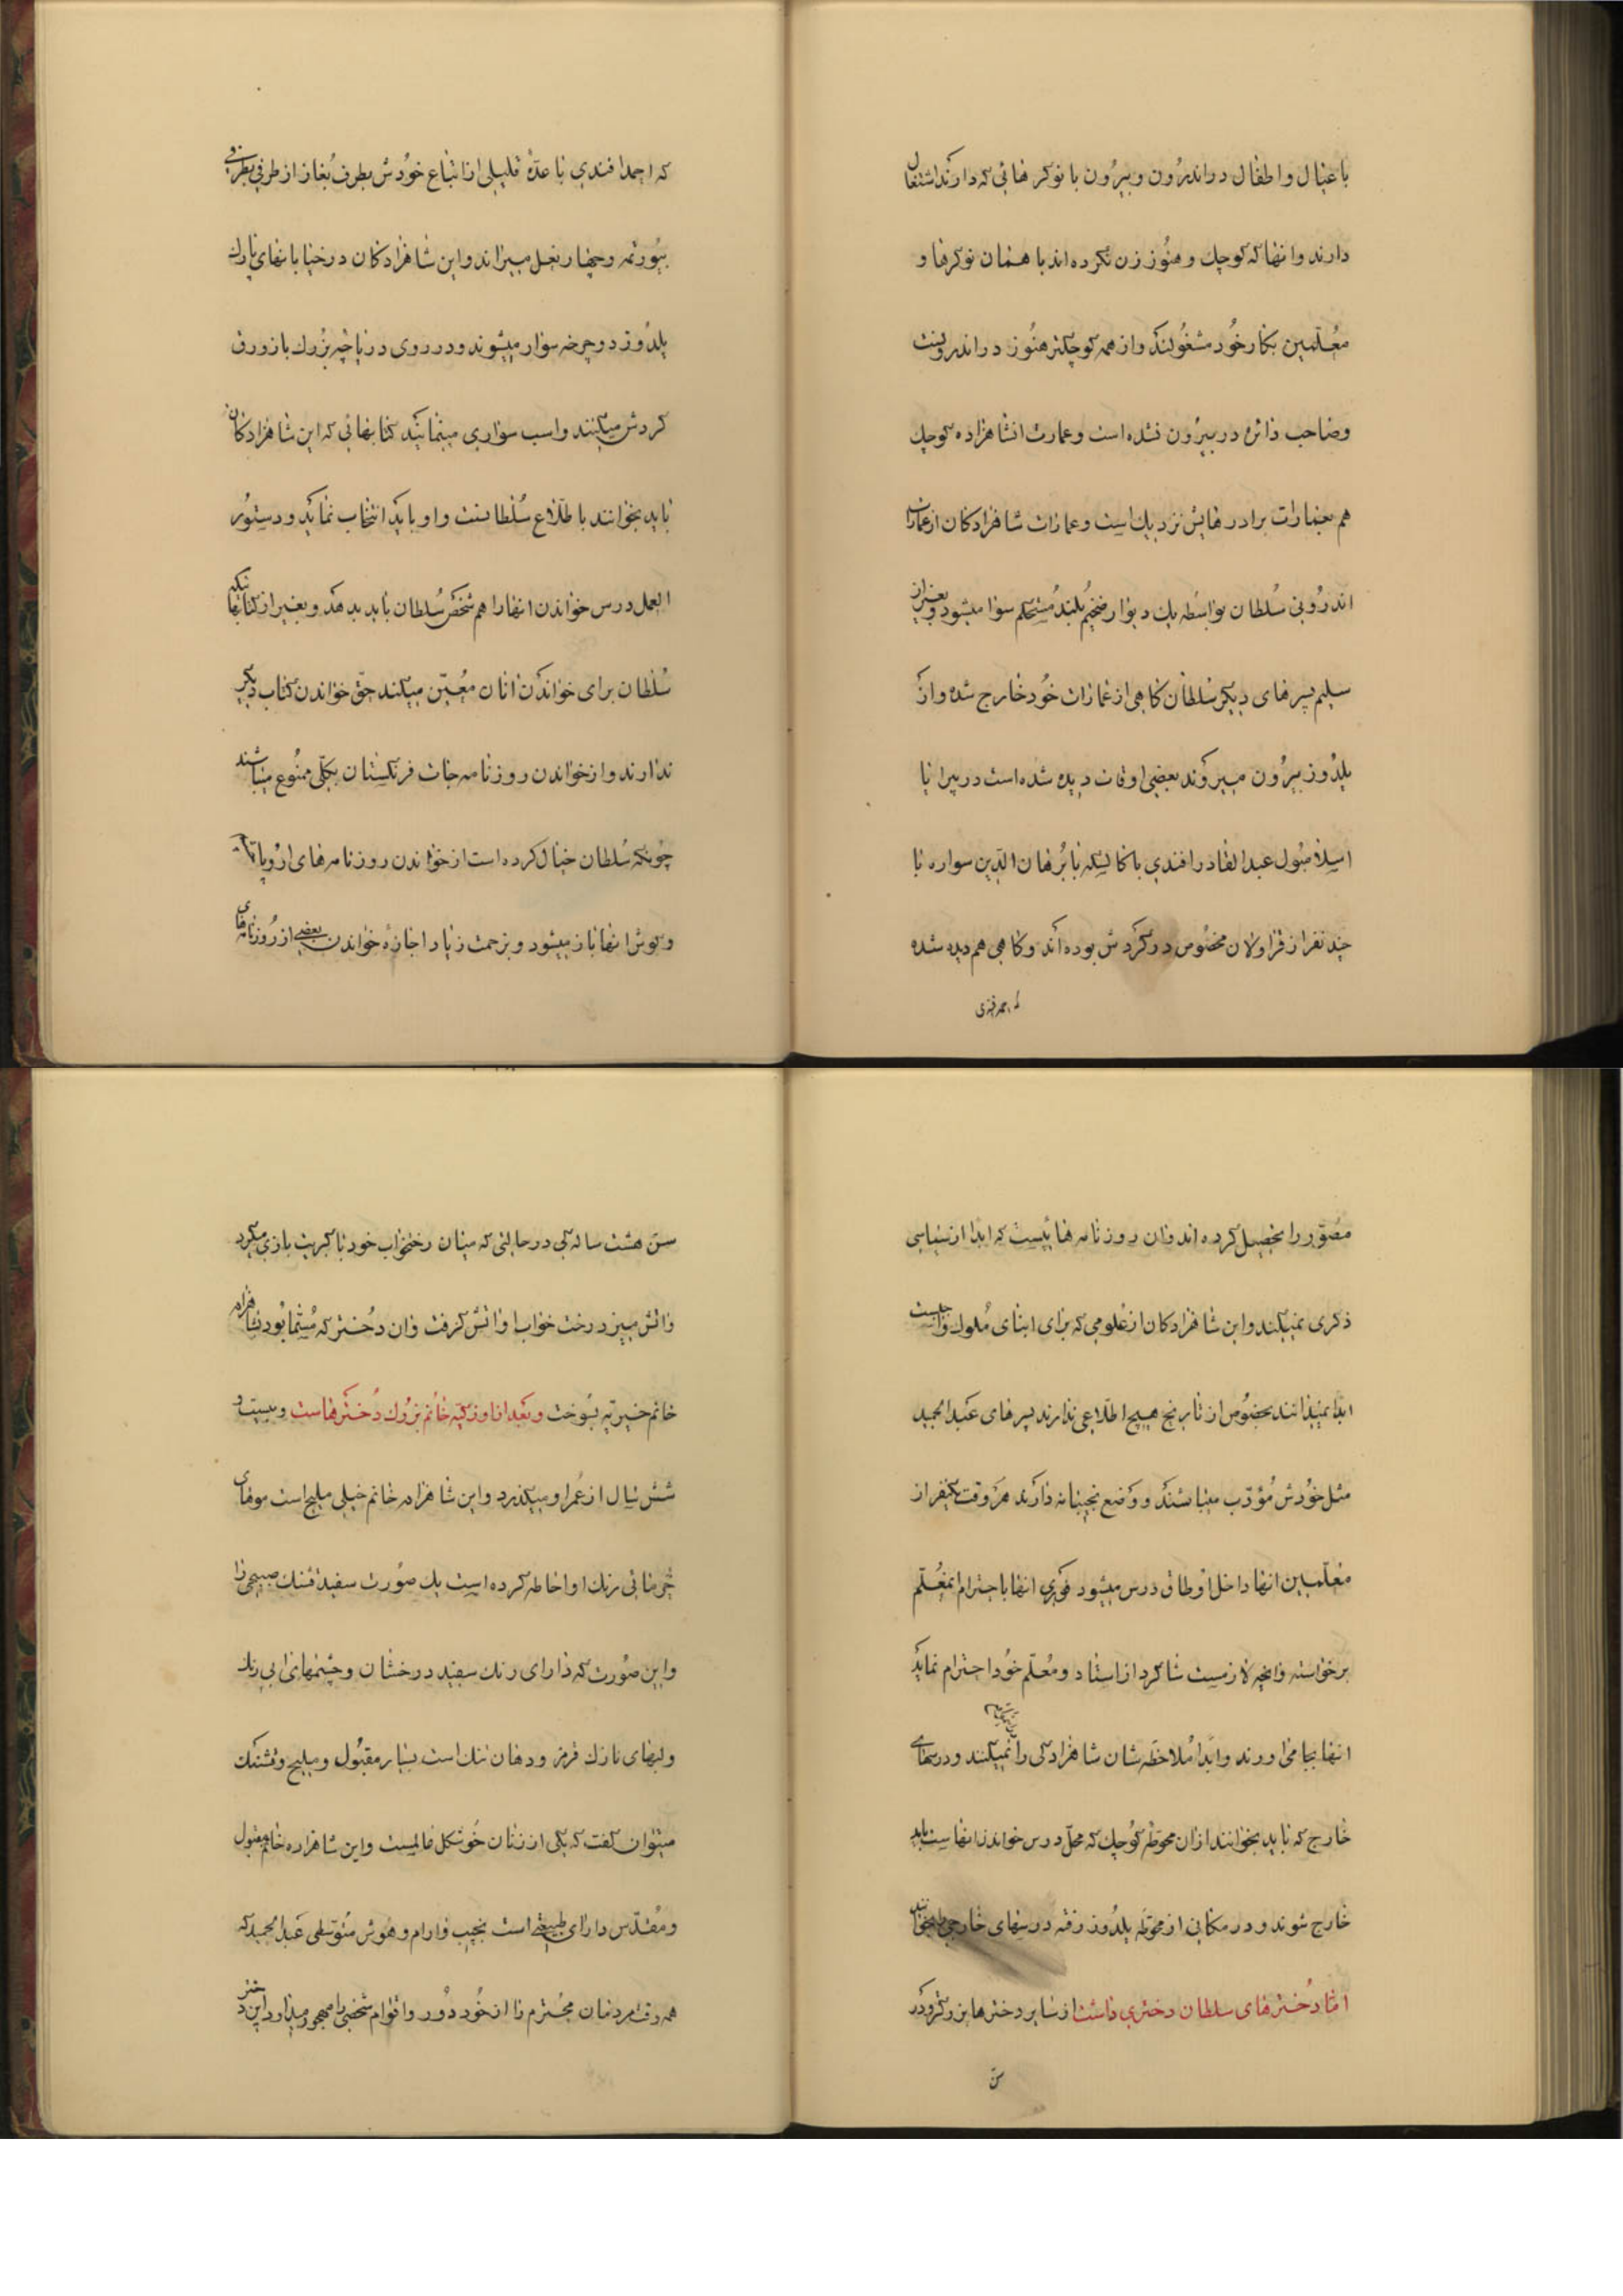 با عیال و اطفال در اندرون و بیرون با نوکر هائی که دارند اشتغال
دارند و انها که کوچک و هنوز زن نکرده اند با همان نوکرها و
معلمین بکار خود مشغولند و از همه کوچکتر هنوز در اندرونست
و صاحب دائره در بیرون نشده است و عمارت انشاهزاده کوچک
هم بعمارات برادرهایش نزدیک است و عمارات شاهزادکان از عمارت
اندرونی سلطان بواسطه یک دیوار ضخیم بلند مستحکم سوا میشود و بغیر از
سلیم پسرهای دیکر سلطان کاهی از عمارات خود خارج شده و از
یلدوز بیرون میروند بعضی اوقات دیده شده است در پیرا یا
اسلامبول عبدالقادر افندی با کالسکه یا برهان الدین سواره با
چند نفر از قراولان مخصوص در کردش بوده اند و کاهی هم دیده شده
که احمد افندی
که احمد افندی با عدۀ قلیلی از اتباع خودش بطرف بغاز از طرفی بطرفی
بیورتمه و چهار نعل میراند و این شاهزادکان در خیابانهای پارک
یلدوز دوچرخه سوار میشوند و در روی دریاچه بزرک با زورق
کردش میکنند و اسب سواری مینمایند کتابهائی که این شاهزادکان
باید بخوانند باطلاع سلطانست و او باید انتخاب نماید و دستور
العمل درس خواندن انها را هم شخص سلطان باید بدهد و بغیر از کتابهائیکه
سلطان برای خواندن انان معین میکند حق خواندن کتاب دیکر
ندارند و از خواندن روزنامه جات فرنکستان بکلی ممنوع میباشند
چونکه سلطان خیال کرده است از خواندن روزنامه های اروپا
و کوش انها باز میشود و بزحمت زیاد اجازه خواندن بعضی از روزنامه های
مصور را تحصیل کرده اند و ان روزنامه هائیست که ابدا از سیاسی
ذکری نمیکند و این شاهزادکان از علومی که برای ابنای ملوک واجبست
ابدا نمیدانند بخصوص از تاریخ هیچ اطلاعی ندارند پسرهای عبدالحمید
مثل خودش مؤدب میباشند و وضع نجیبانه دارند هر وقت یکنفر از
معلمین انها داخل اوطاق درس میشود فوری انها باحترام معلم
برخواسته و انچه لازمست شاکرد از استاد و معلم خود احترام نماید
انها بجا می اورند و ابدا ملاحظه شان شاهزادکی را نمیکنند و درسهای
خارج که باید بخوانند از ان محوطه کوچک که محل درس خواندن انهاست باید
خارج شوند و در مکانی از محوطه یلدوز رفته درسهای خارجی را بخوانند
اما دخترهای سلطان دختری داشت از سایر دخترها بزرکتر و در
سن
سن هشت سالکی در حالتی که میان رختخواب خود با کبریت بازی میکرد
و اتش میزد رخت خواب او اتش کرفت و ان دختر که مسما بود بشاهزاده
خانم خیریه بسوخت و بعد از او زکیه خانم بزرک دخترهاست و بیست و
شش سال از عمر او میکذرد و این شاهزاده خانم خیلی ملیح است موهای
خرمائی رنک او احاطه کرده است یک صورت سفید قشنک صبیحی را
و این صورت که دارای رنک سفید درخشان و چشمهای ابی رنک
و لبهای نازک قرمز و دهان تنک است بسیار مقبول و ملیح و قشنک
میتوان کفت که یکی از زنان خوشکل عالمست و این شاهزاده خانم مقبول
و مقدس دارای طبیعتی است نجیب و ارام و هوش متوسطی عبدالحمید که
همه وقت مردمان محترم را از خود دور و اقوام شخصی را مهجور میدارد این دختر